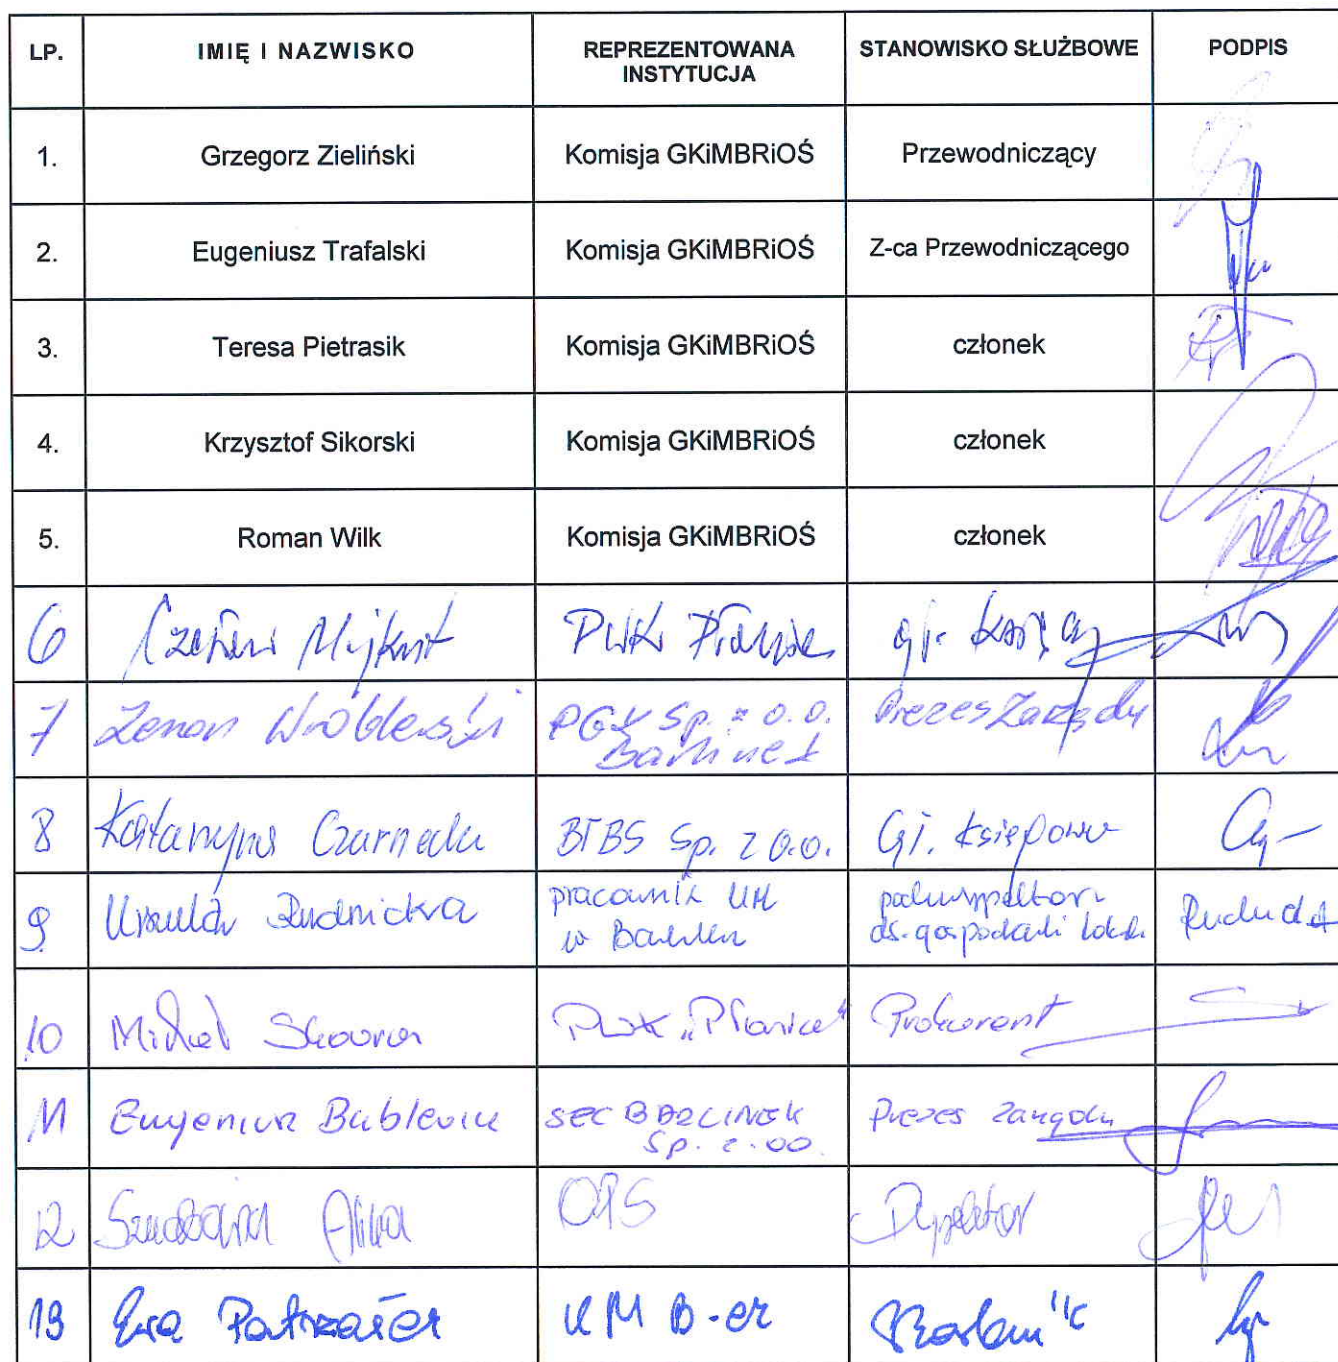 LP. IMIĘ I NAZWISKO REPREZENTOWANA INSTYTUCJA STANOWISKO SŁUŻBOWE PODPIS
1. Grzegorz Zieliński Komisja GKiMBRiOŚ Przewodniczący
2. Eugeniusz Trafalski Komisja GKiMBRiOŚ Z-ca Przewodniczącego
3. Teresa Pietrasik Komisja GKiMBRiOŚ członek
4. Krzysztof Sikorski Komisja GKiMBRiOŚ członek
5. Roman Wilk Komisja GKiMBRiOŚ członek
6 PWK Płonia
7 Zenon Wróblewski PGK Sp. z o.o. Prezes Zarządu
Barlinek
8 Katarzyna Czarnecka BTBS Sp. z o.o. Gł. księgowa
9 Urszula Rudnicka pracownik UM podinspektor
w Barlinku ds. gospodarki lokal.
10 Michał PWK „Płonia" Prokurent
11 Eugeniusz SEC BARLINEK Prezes Zarządu
Sp. z.oo.
12 Alina OPS Dyrektor
13 Ewa UM B-ek